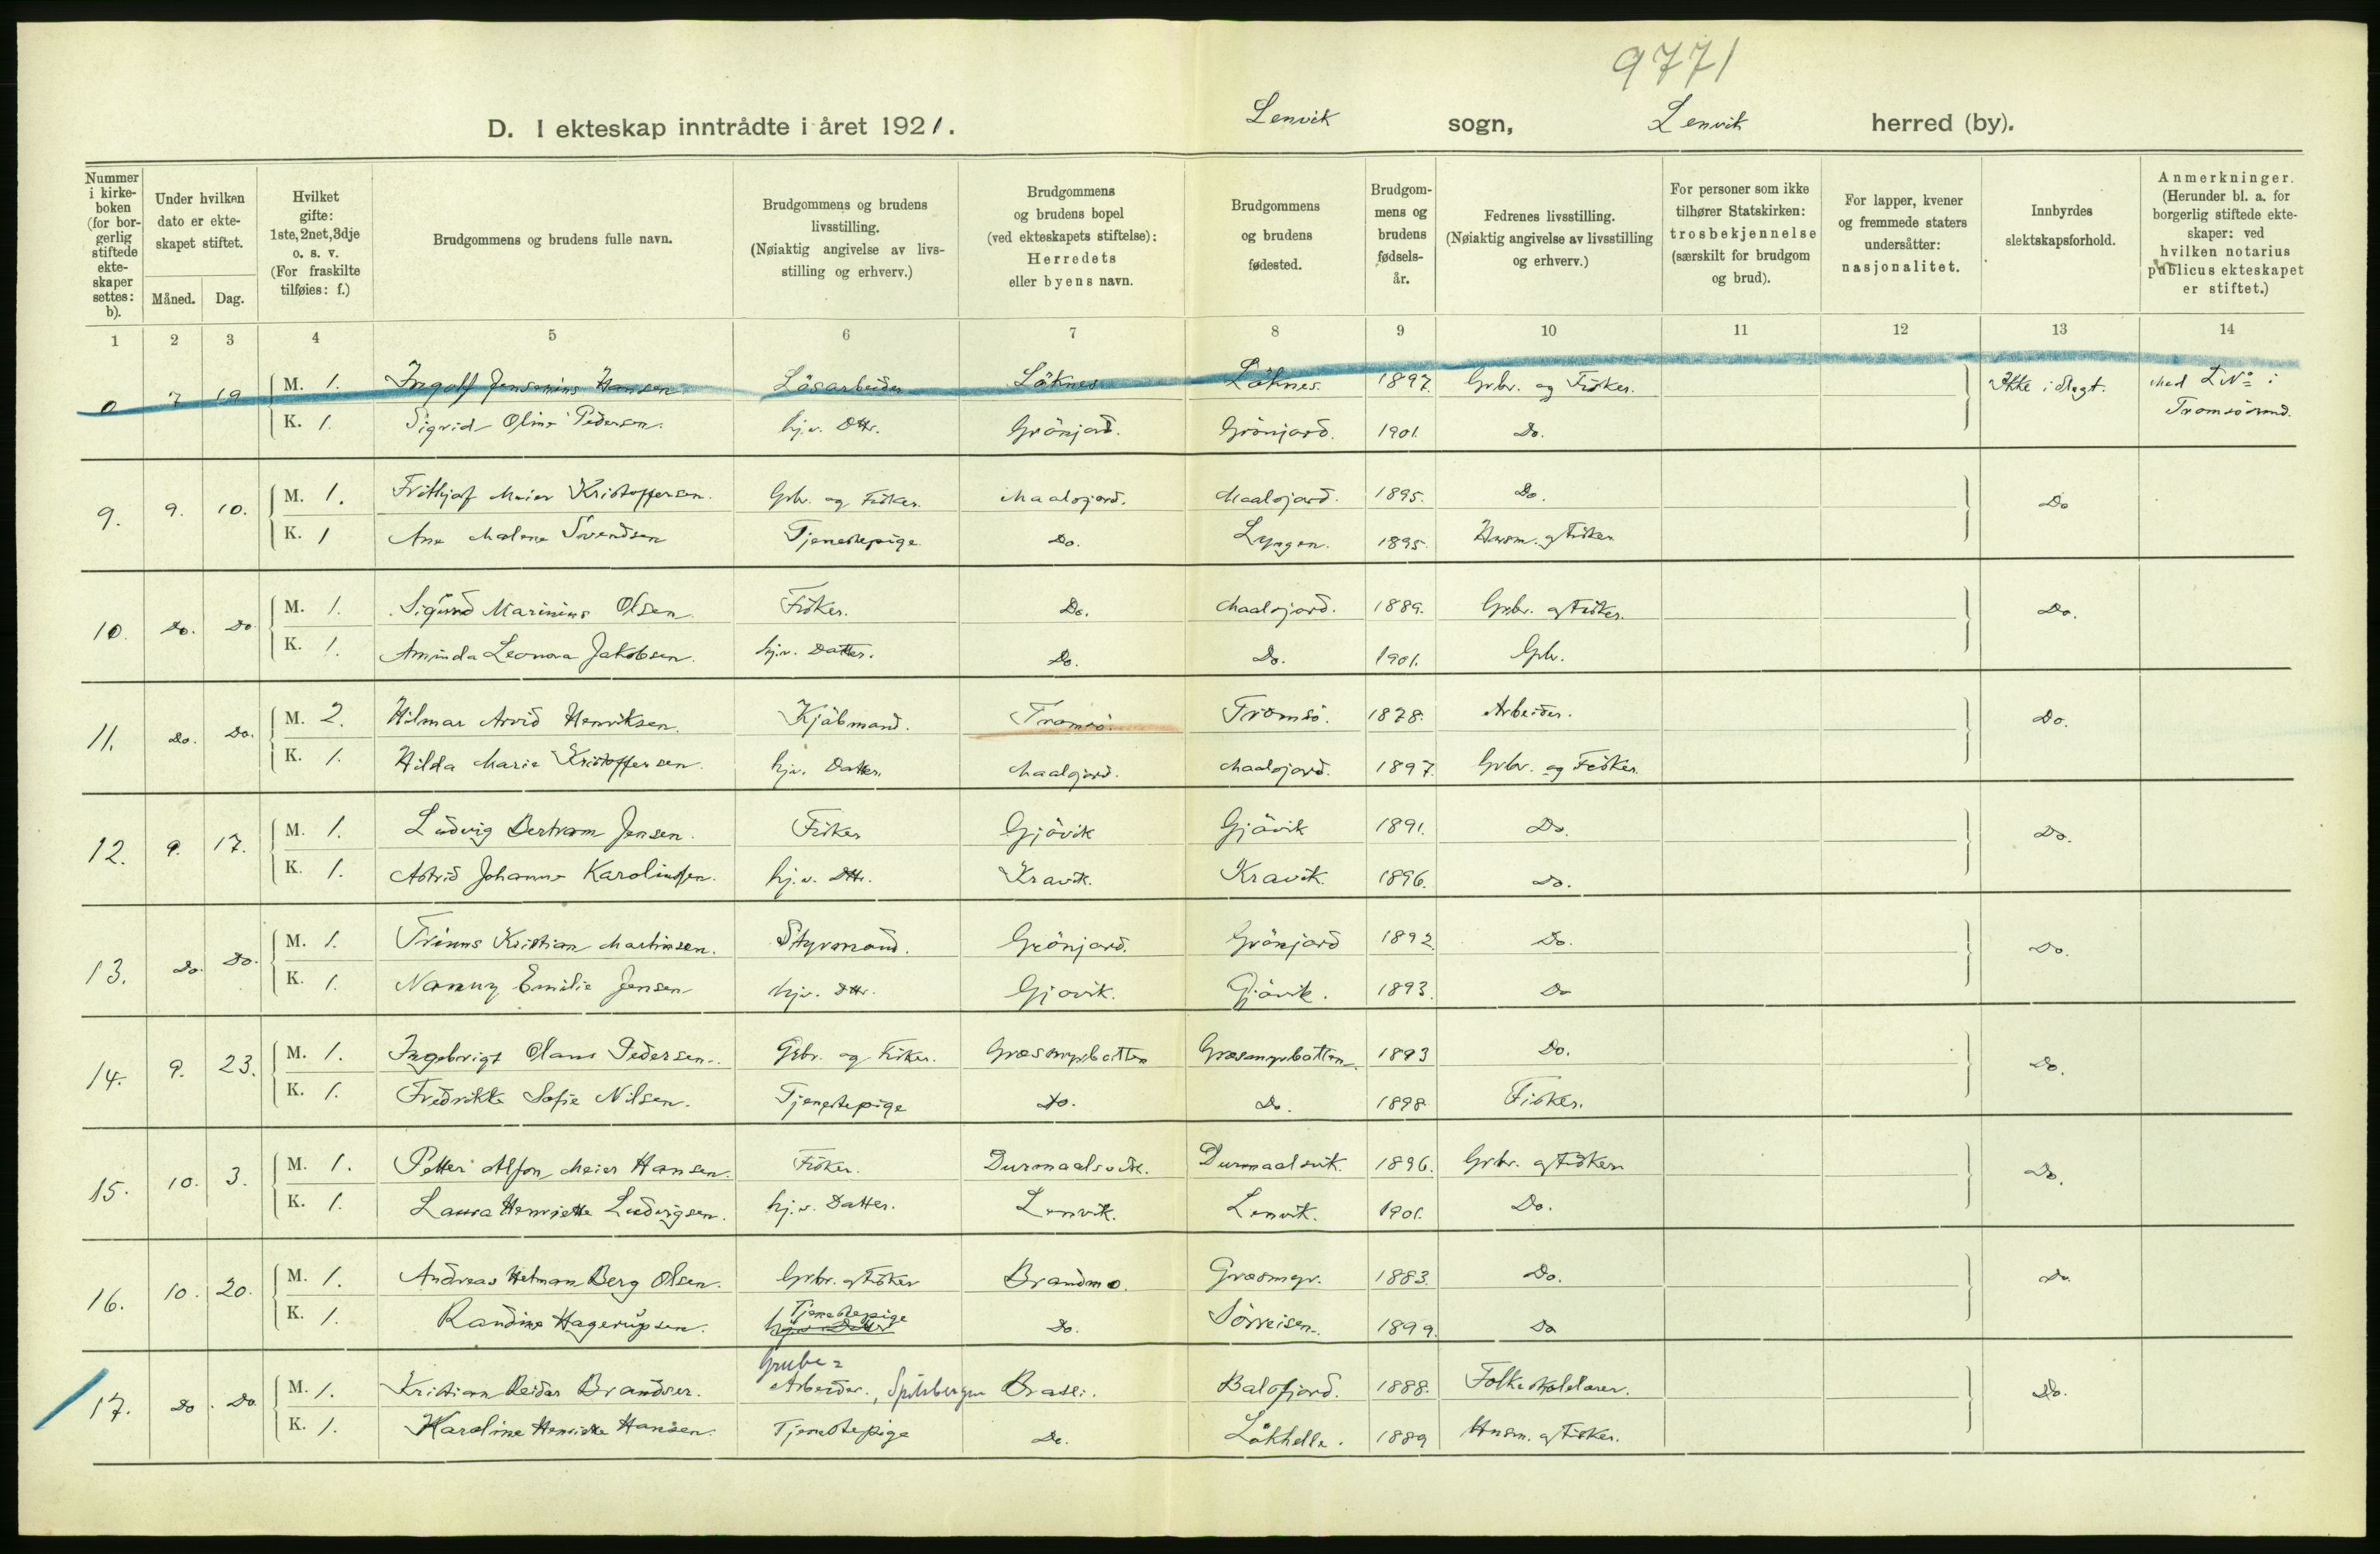 9771
D. I ekteskap inntrådte i året 1921. Lenvik sogn, Lenvik herred (by).
Nummer i kirkeboken (for borgerlig stiftede ekteskaper settes: b).
Under hvilken dato er ekteskapet stiftet.
Måned. Dag.
Hvilket gifte: 1ste, 2net, 3dje o. s. v. (For fraskilte tilføies: f.)
Brudgommens og brudens fulle navn.
Brudgommens og brudens livsstilling. (Nøiaktig angivelse av livsstilling og erhverv.)
Brudgommens og brudens bopel (ved ekteskapets stiftelse): Herredets eller byens navn.
Brudgommens og brudens fødested.
Brudgommens og brudens fødselsår.
Fedrenes livsstilling. (Nøiaktig angivelse av livsstilling og erhverv.)
For personer som ikke tilhører Statskirken: trosbekjennelse (særskilt for brudgom og brud).
For lapper, kvener og fremmede staters undersåtter: nasjonalitet.
Innbyrdes slektskapsforhold.
Anmerkninger. (Herunder bl. a. for borgerlig stiftede ekteskaper: ved hvilken notarius publicus ekteskapet er stiftet.)
1 2 3 4 5 6 7 8 9 10 11 12 13 14
0 7 19 M. 1. Ingolf Jensenius Hansen Lösarbeider Löknes Löknes. 1897. Grbr. og Fisker. Ikke i Slegt. Med L No i
K. 1. Sigrid Oline Pedersen. hj.v. Dttr. Grönjord. Grönjord. 1901. Do. Tromsösund.
9. 9. 10. M. 1. Frithjof Meier Kristoffersen. Gbr. og Fisker. Maalsjord. Maalsjord. 1895. Do. Do
K. 1 Ane Malene Svendsen Tjenestepige Do. Lyngen. 1895. Husm. og Fisker
10. Do. Do. M. 1. Sigurd Marinius Olsen Fisker. Do. Maalsjord. 1889. Grbr. og Fisker. Do.
K. 1. Aminda Leonora Jakobsen. hj.v. Datter. Do. Do. 1901. Gbr.
11. Do. Do. M. 2. Hilmar Arvid Henriksen. Kjöbmand. Tromsö. Tromsö. 1878. Arbeider. Do.
K. 1. Hilda Marie Kristoffersen. hjv. Datter. Maalsjord. Maalsjord. 1897. Grbr. og Fisker.
12. 9. 17. M. 1. Ludvig Bertram Jensen. Fisker Gjövik Gjövik 1891. Do. Do.
K. 1. Astrid Johanne Karolinssen. hj.v. Dttr. Kravik. Kravik. 1896. Do.
13. Do. Do. M. 1. Kristian Martinsen. Styrmand. Grönjord. Grönjord 1892. Do. Do.
K. 1. Nanny Emilie Jensen hjv. Dttr. Gjovik. Gjövik. 1893. Do
14. 9. 23. M. 1. Ingebrigt Olaus Pedersen. Grbr. og Fisker. Græsmyrbotten Græsmyrbotten. 1893 Do. Do.
K. 1. Fredrikke Sofie Nilsen. Tjenestepige Do. Do. 1898. Fisker.
15. 10. 3. M. 1. Petter Alfon Meier Hansen. Fisker. Durmaalsvik. Durmaalsvik. 1896. Grbr. og Fisker Do.
K. 1. Laura Henriette Ludvigsen. hj.v. Datter. Lenvik. Lenvik. 1901. Do.
16. 10. 20. M. 1. Andreas Hetman Berg Olsen. Grbr. og Fisker Brandmo. Græsmyr. 1883. Do. Do.
K. 1. Randine Hagerupsen. Tjenestepige Do. Sörreisen. 1899. Do
17. Do. Do. M. 1. Kristian Reidar Brandser. Grube= Arbeider, Spitsbergen Bratli. Balsfjord. 1888. Folkeskolelærer. Do.
K. 1. Karoline Henriette Hansen. Tjenestepige Do. Lökhelle. 1889 Husm. og Fisker.